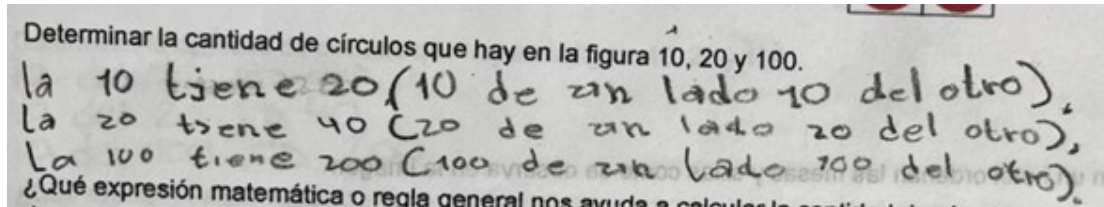 Determinar la cantidad de círculos que hay en la figura 10, 20 y 100.
la 10 tiene 20 (10 de un lado 10 del otro).
La 20 tiene 40 (20 de un lado 20 del otro),
La 100 tiene 200 (100 de un lado 100 del otro).
¿Qué expresión matemática o regla general nos ayuda a calcular la